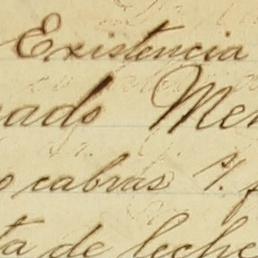 Existencia
nado Men
o cabras
ta de leche